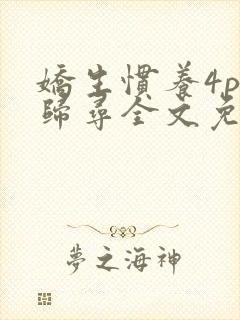 嬌生慣養4p
歸尋全文免
夢之海神